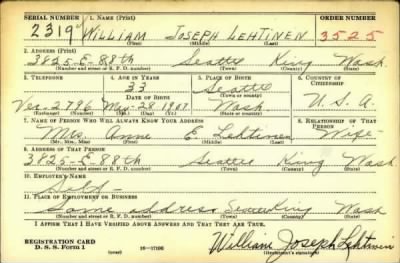 SERIAL NUMBER 1. NAME (Print) ORDER NUMBER
2319 WILLIAM JOSEPH LEHTINEN 3525
(First) (Middle) (Last)
2. ADDRESS (Print)
3825-E-88th Seattle King Wash.
(Number and street or R. F. D. number) (Town) (County) (State)
3. TELEPHONE 4. AGE IN YEARS 5. PLACE OF BIRTH 6. COUNTRY OF CITIZENSHIP
33 Seattle
DATE OF BIRTH (Town or county)
Ver-2796 28 1907 Wash U.S.A.
(Exchange) (No.) (Mo.) (Day) (Yr.) (State or country)
7. NAME OF PERSON WHO WILL ALWAYS KNOW YOUR ADDRESS 8. RELATIONSHIP OF THAT PERSON
Mrs. Anne E. Lehtinen Wife
(Mr., Mrs., Miss) (First) (Middle) (Last)
9. ADDRESS OF THAT PERSON
3825-E-88th Seattle King Wash
(Number and street or R. F. D. number) (Town) (County) (State)
10. EMPLOYER'S NAME
11. PLACE OF EMPLOYMENT OR BUSINESS
Same address King Wash
(Number and street or R. F. D. number) (Town) (County) (State)
I AFFIRM THAT I HAVE VERIFIED ABOVE ANSWERS AND THAT THEY ARE TRUE.
REGISTRATION CARD
D. S. S. Form 1 (over) 16-17105 William Joseph Lehtinen
(Registrant's signature)